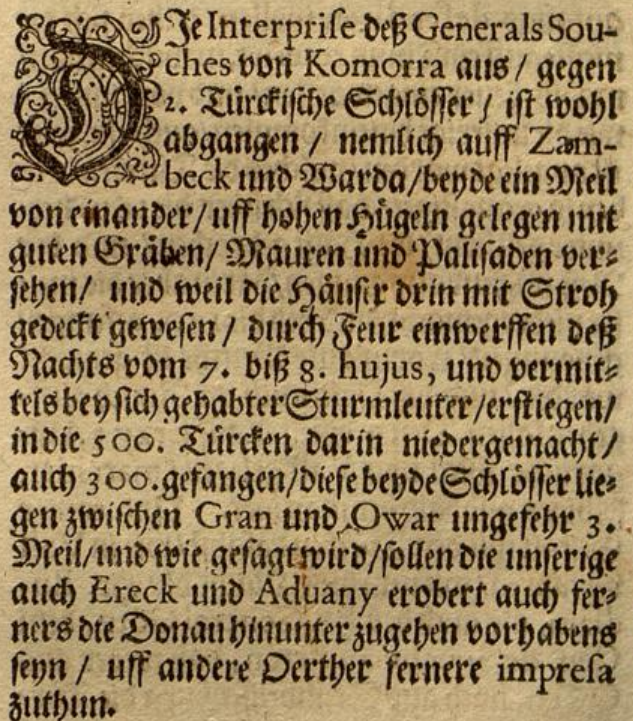 DJe Interprise deß Generals Sou-
ches von Komorra aus / gegen
2. Türckische Schlösser / ist wohl
abgangen / nemlich auff Zam-
beck und Warda/beyde ein Meil
von einander/uff hohen Hügeln gelegen mit
guten Gräben/ Mauren und Palisaden ver-
sehen/ und weil die Häuser drin mit Stroh
gedeckt gewesen / durch Feur einwerffen deß
Nachts vom 7. biß 8. hujus, und vermit-
tels bey sich gehabter Sturmleuter/erstiegen/
in die 500. Türcken darin niedergemacht/
auch 300. gefangen/diese beyde Schlösser lie-
gen zwischen Gran und Owar ungefehr 3.
Meil/und wie gesagt wird/sollen die unserige
auch Ereck und Aduany erobert auch fer-
ners die Donau hinunter zugehen vorhabens
seyn / uff andere Oerther fernere impresa
zuthun.